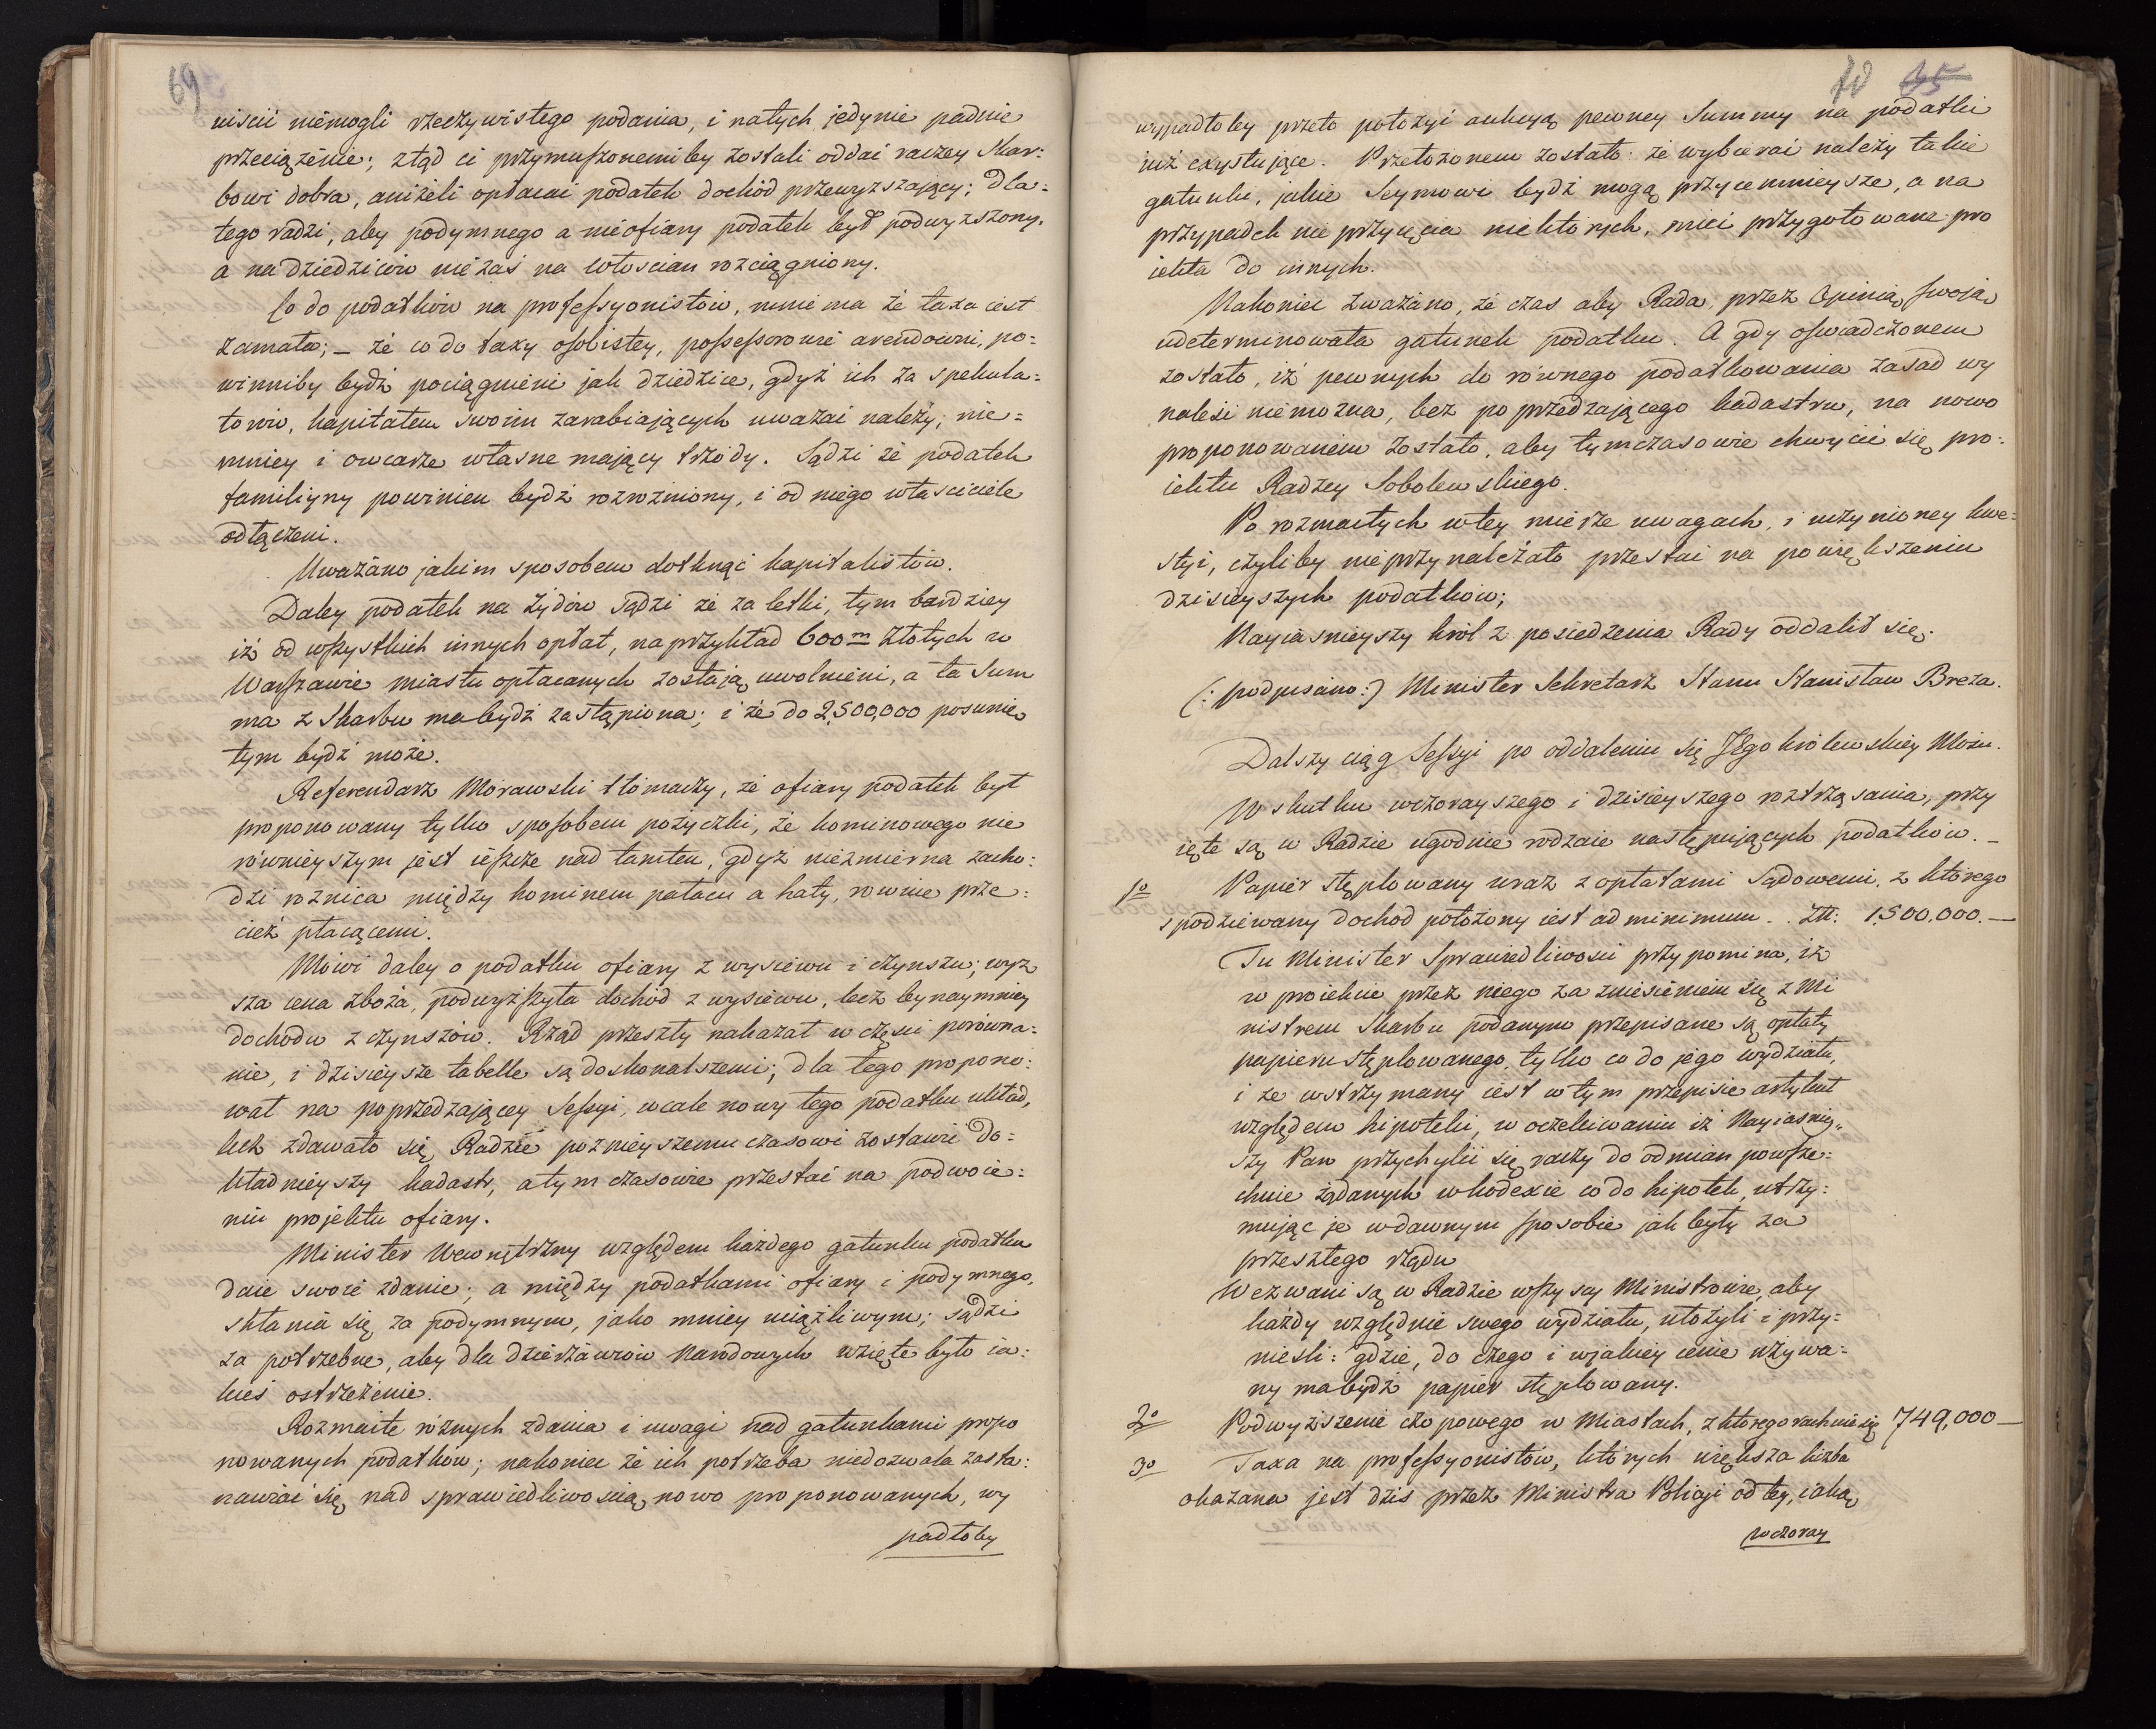 69
niścić niemogli rzeczywistego podania, i natych jedynie padnie
przeciążenie; ztąd ci przymuszonemiby zostali oddać raczey Skar:
bowi dobra, aniżeli opłacać podatek dochód przewyższający; dla=
tego radzi, aby podymnego a nieofiary podatek był podwyższony,
a na dziedziców nie zaś na włościan rozciągniony.
Co do podatków na professyonistów, mniema że taxa iest
zamała; – że co do taxy osobistey, possessorowie arendowni, po=
winniby bydź pociągnieni jak dziedzice, gdyż ich za spekula=
torów, kapitałem swoim zarabiających uważać należy; nie=
mniey i owcarze własne mający trzody. Sądzi że podatek
familiyny powinien bydź rozrożniony, i od niego właściciele
odłączeni.
Uważano jakim sposobem dotknąć kapitalistów.
Daley podatek na Żydów sądzi że za letki, tym bardziey
iż od wszystkich innych opłat, naprzykład 600m złotych w
Warszawie miastu opłacanych zostają uwolnieni, a ta Sum
ma z Skarbu ma bydź zastąpiona; i że do 2,500,000 posunię
tym bydź może.
Referendarz Morawski tłomaczy, że ofiary podatek był
proponowany tylko sposobem pożyczki, że kominowego nie
równieyszym jest ieszcze nad tamten, gdyż niezmierna zacho:
dzi roznica między kominem pałacu a haty, rownie prze:
cież płacącemi.
Mówi daley o podatku ofiary z wysiewu i czynszu; wyż
sza cena zboża, podwyższyła dochód z wysiewu, lecz bynaymniey
dochodu z czynszów. Rząd przeszły nakazał w części porówna:
nie, i dzisieysze tabelle są doskonalszemi; dla tego propono:
wał na poprzedzającey Sessyi, wcale nowy tego podatku układ,
lecz zdawało się Radzie poznieyszemu czasowi zostawić do=
kładnieyszy kadastr, a tymczasowie przestać na podwoie:
niu projektu ofiary.
Minister Wewnętrzny względem każdego gatunku podatku
daie swoie zdanie; a między podatkami ofiary i podymnego,
skłania się za podymnym, jako mniey uciążliwym; sądzi
za potrzebne, aby dla dzierżawców Narodowych wzięte było ia:
kieś ostrzeżenie.
Rozmaite różnych zdania i uwagi nad gatunkami propo
nowanych podatków; nakoniec że ich potrzeba niedozwala zasta:
nawiać się nad sprawiedliwością nowo proponowanych, wy
padłoby
70 35
wypadłoby przeto położyć aukcyą pewney Summy na podatki
już exystujące. Przełożonem zostało: że wybierać należy takie
gatunki, jakie Seymowi bydź mogą przyiemnieysze, a na
przypadek nie przyięcia niektórych, mieć przygotowane pro
iekta do innych.
Nakoniec zważano, że czas aby Rada, przez Opinią swoją
udeterminowała gatunek podatku. A gdy oświadczonem
zostało, iż pewnych do równego podatkowania zasad wy
naleźć niemożna, bez poprzedzającego kadastru, na nowo
proponowaniem zostało, aby tymczasowie chwycić się pro:
iektu Radzcy Sobolewskiego.
Po rozmaitych w tey mierze uwagach, i uczynioney kwe=
styi, czyliby nieprzynależało przestać na powiększeniu
dzisieyszych podatków;
Nayiaśnieyszy król z posiedzenia Rady oddalił się.
(: podpisano:) Minister Sekretarz Stanu Stanisław Breza.
Dalszy ciąg Sessyi po oddaleniu się JEgo królewskiey Mości.
W skutku wczorayszego i dzisieyszego roztrząsania, przy
ięte są w Radzie ugodnie rodzaie następujących podatków. –
1o Papier stęplowany wraz z opłatami Sądowemi, z którego
spodziewany dochod położony iest ad minimum . . Złł: 1,500.000.–
Tu Minister Sprawiedliwości przypomina, iż
w proiekcie przez niego za zniesieniem się z Mi
nistrem Skarbu podanym przepisane są opłaty
papieru stęplowanego, tylko co do jego wydziału,
i że wstrzymany iest w tym przepisie artykuł
względem hipoteki, w oczekiwaniu iż Nayiasniey„
szy Pan przychylić się raczy do odmian powsze:
chnie żądanych w kodexie co do hipotek, utrzy:
mując je w dawnym sposobie jak były za
przeszłego rządu
Wezwani są w Radzie wszyscy Ministrowie, aby
każdy względnie swego wydziału, ułożyli i przy=
nieśli: gdzie, do czego i w jakiey cenie używa=
ny ma bydź papier stęplowany.
2o Podwyższenie czopowego w Miastach, z którego rachuie się 749,000–
3o Taxa na professyonistów, których większa liczba
okazana jest dziś przez Ministra Policyi od tey, iaką
wczoray